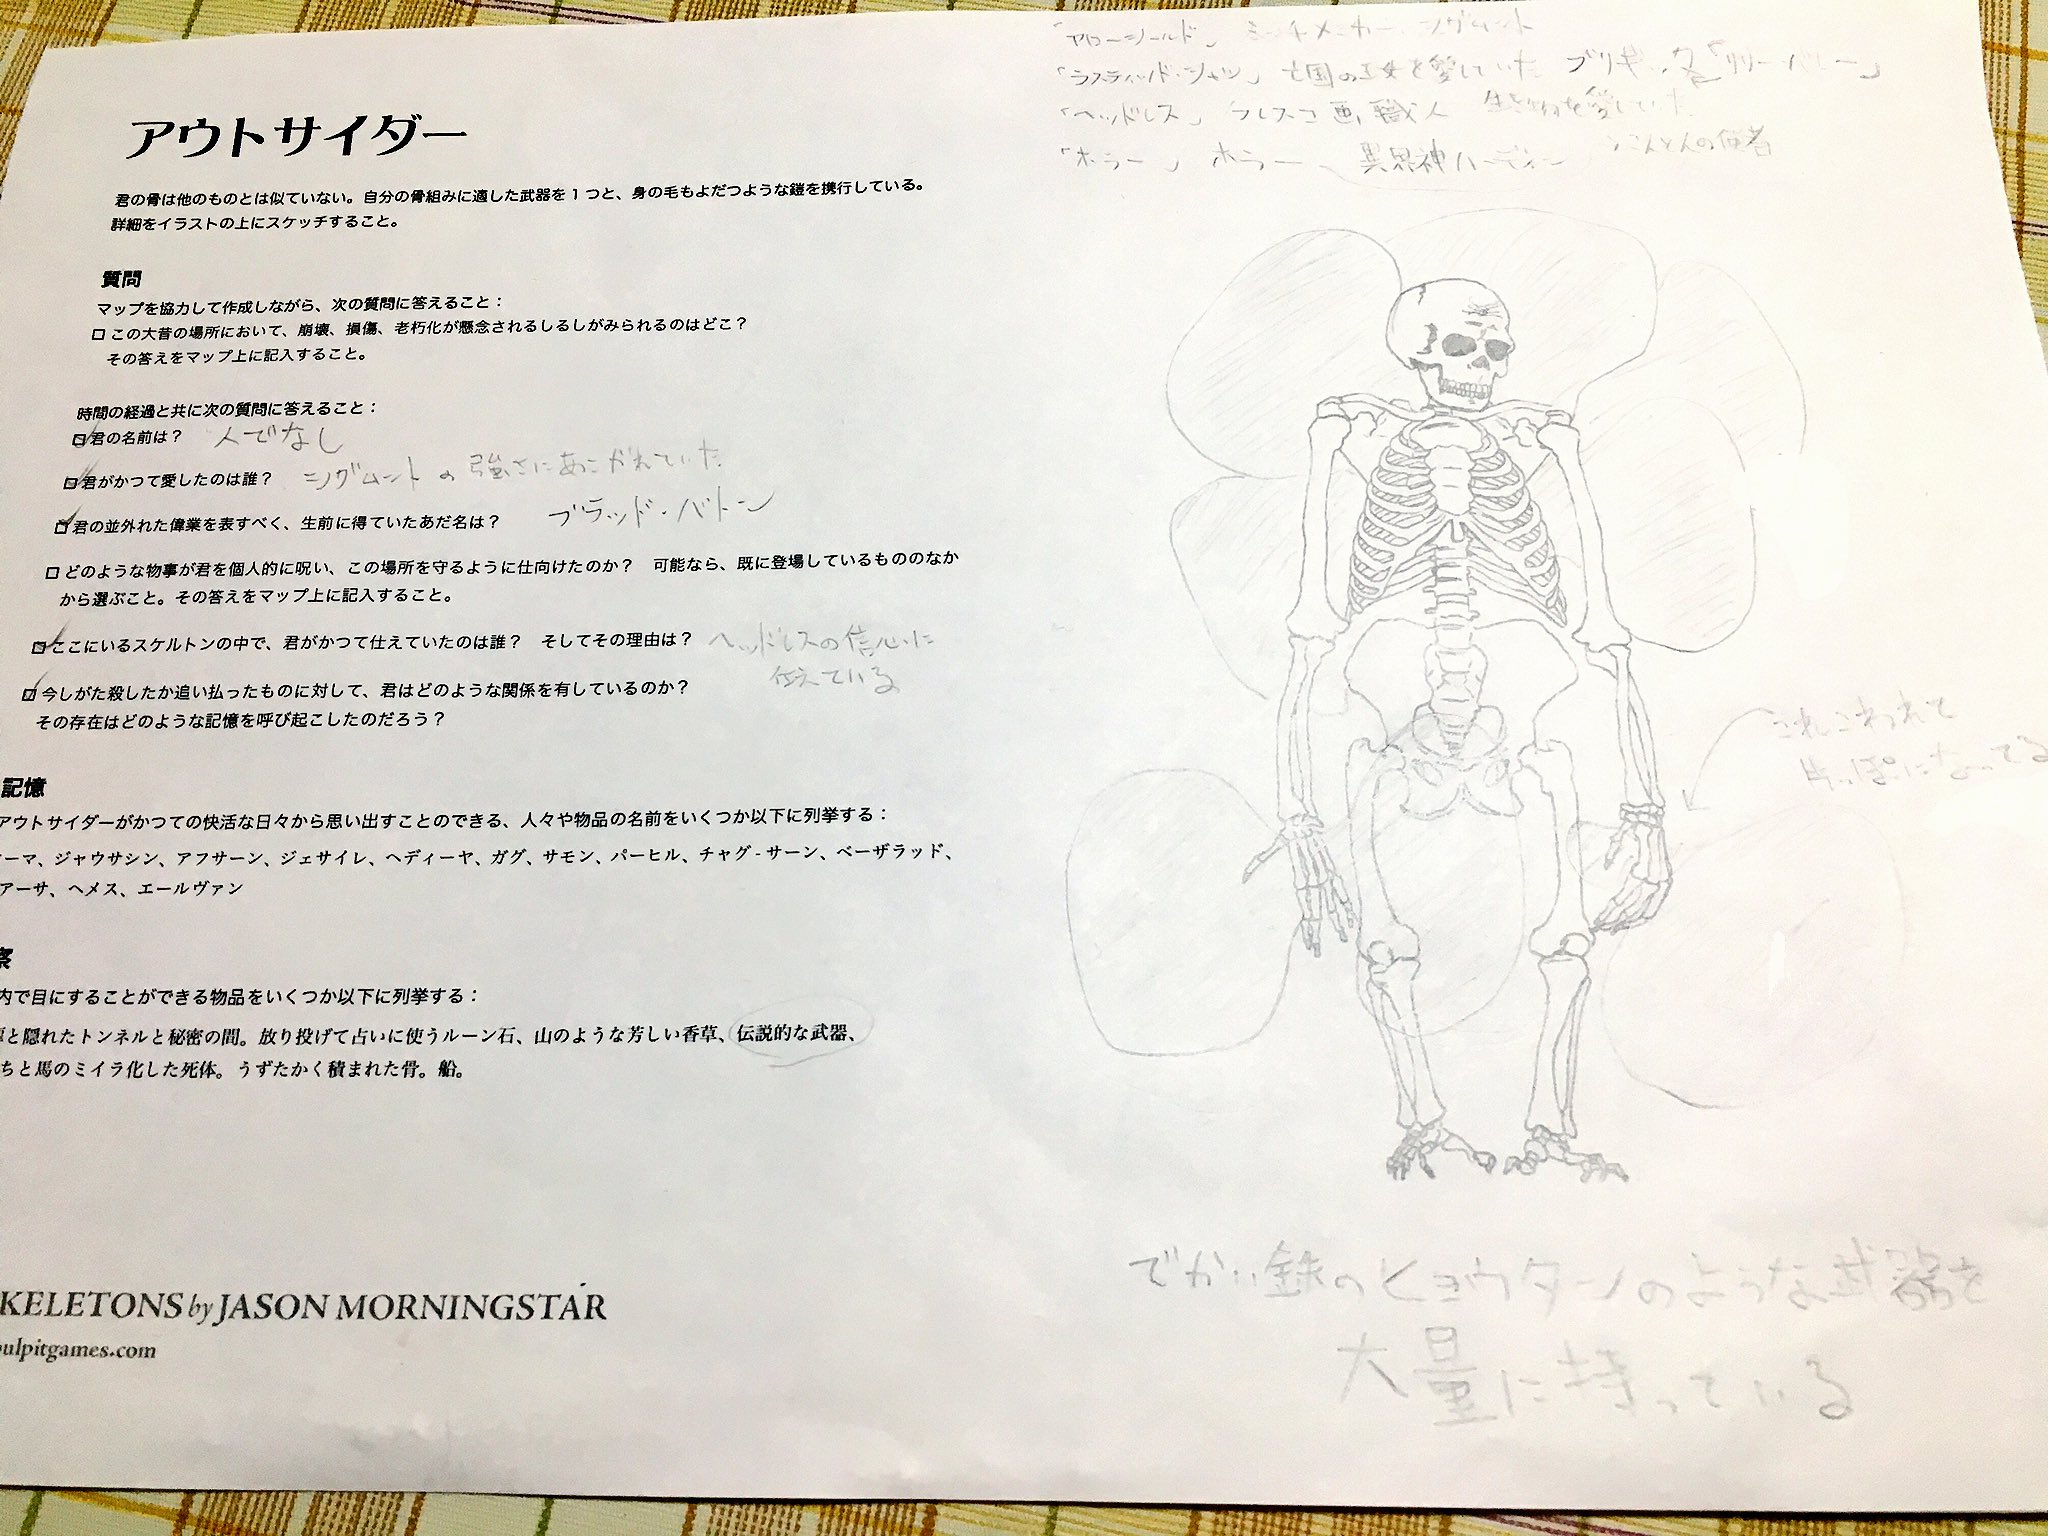 アウトサイダー
君の骨は他のものとは似ていない。自分の骨組みに適した武器を1つと、身の毛もよだつような鎧を携行している。
詳細をイラストの上にスケッチすること。
質問
マップを協力して作成しながら、次の質問に答えること：
□ この大昔の場所において、崩壊、損傷、老朽化が懸念されるしるしがみられるのはどこ？
その答えをマップ上に記入すること。
時間の経過と共に次の質問に答えること：
□ 君の名前は？ 人でなし
□ 君がかつて愛したのは誰？ シグムントの強さにあこがれていた
□ 君の並外れた偉業を表すべく、生前に得ていたあだ名は？ ブラッド・バトン
□ どのような物事が君を個人的に呪い、この場所を守るように仕向けたのか？ 可能なら、既に登場しているもののなか
から選ぶこと。その答えをマップ上に記入すること。
□ ここにいるスケルトンの中で、君がかつて仕えていたのは誰？ そしてその理由は？ ヘッドレスの信心に
仕えている
□ 今しがた殺したか追い払ったものに対して、君はどのような関係を有しているのか？
その存在はどのような記憶を呼び起こしたのだろう？
記憶
アウトサイダーがかつての快活な日々から思い出すことのできる、人々や物品の名前をいくつか以下に列挙する：
ーマ、ジャウサシン、アフサーン、ジェサイレ、ヘディーヤ、ガグ、サモン、パーヒル、チャグ-サーン、ベーザラッド、
アーサ、ヘメス、エールヴァン
察
内で目にすることができる物品をいくつか以下に列挙する：
と隠れたトンネルと秘密の間。放り投げて占いに使うルーン石、山のような芳しい香草、伝説的な武器、
ちと馬のミイラ化した死体。うずたかく積まれた骨。船。
KELETONS by JASON MORNINGSTAR
ulpitgames.com
「アローシールド」 シグムント
「ラスティッド・シャツ」 亡国の王女を愛していた 「リリー・バレー」
「ヘッドレス」 フレスコ画職人 愛していた
「ホラー」 ホラー、異界神ハーディネー こんとんの使者
これこわれて
片っぽになってる
でかい鉄のヒョウタンのような武器を
大量に持っている